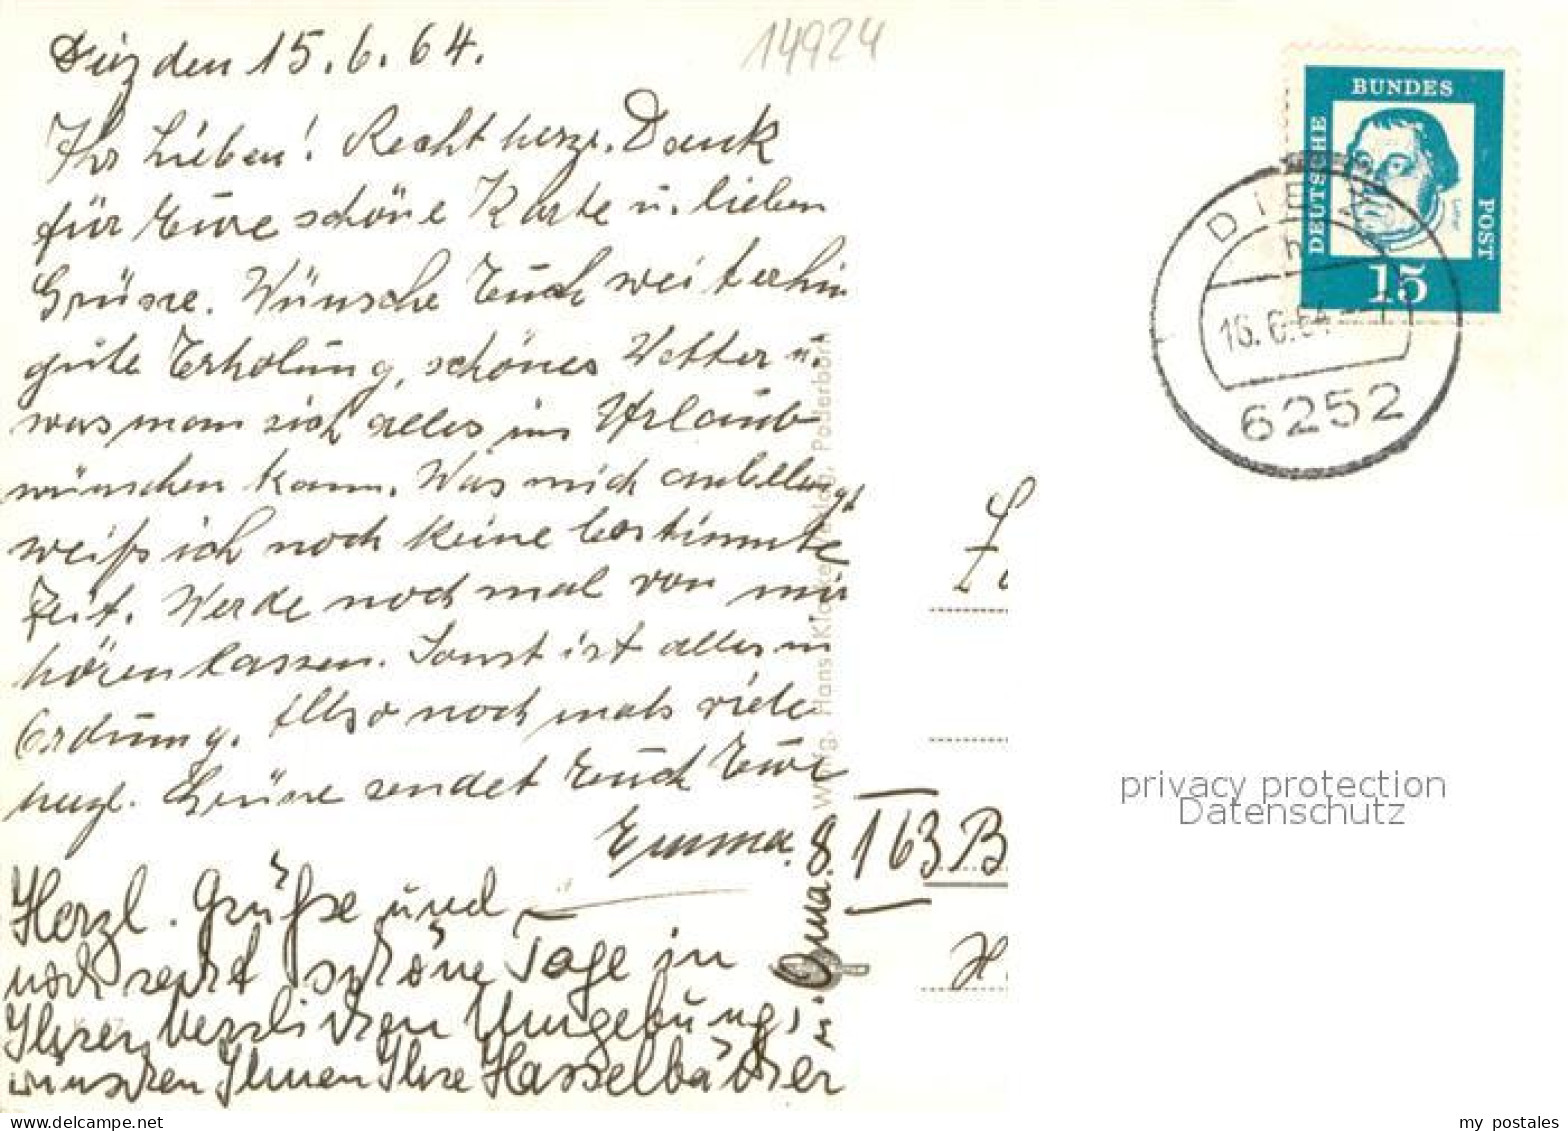 Diez den 15.6.64.
14924
Ihr Lieben! Recht herzl. Dank
für Eure schöne Karte u. lieben
Grüsse. Wünsche Euch weiterhin
gute Erholung, schönes Wetter u.
was man sich alles im Urlaub
wünschen kann. Was mich anbelangt
weiß ich noch keine bestimmte
Zeit. Werde noch mal von mir
hören lassen. Sonst ist alles in
Ordnung. Also noch mals viele
herzl. Grüsse sendet Euch Eure
Emma.
Herzl. Grüße und
noch recht schöne Tage in
Ihrer herrlichen Umgebung,
wünschen Ihnen Ihre Hasselbächer
u. Oma.
Hans Klocke Verlag, Paderborn
8
I 63 B
DEUTSCHE
BUNDES
POST
Luther
15
DIEZ
h
16.6.64
6252
privacy protection
Datenschutz
www.delcampe.net
my postales